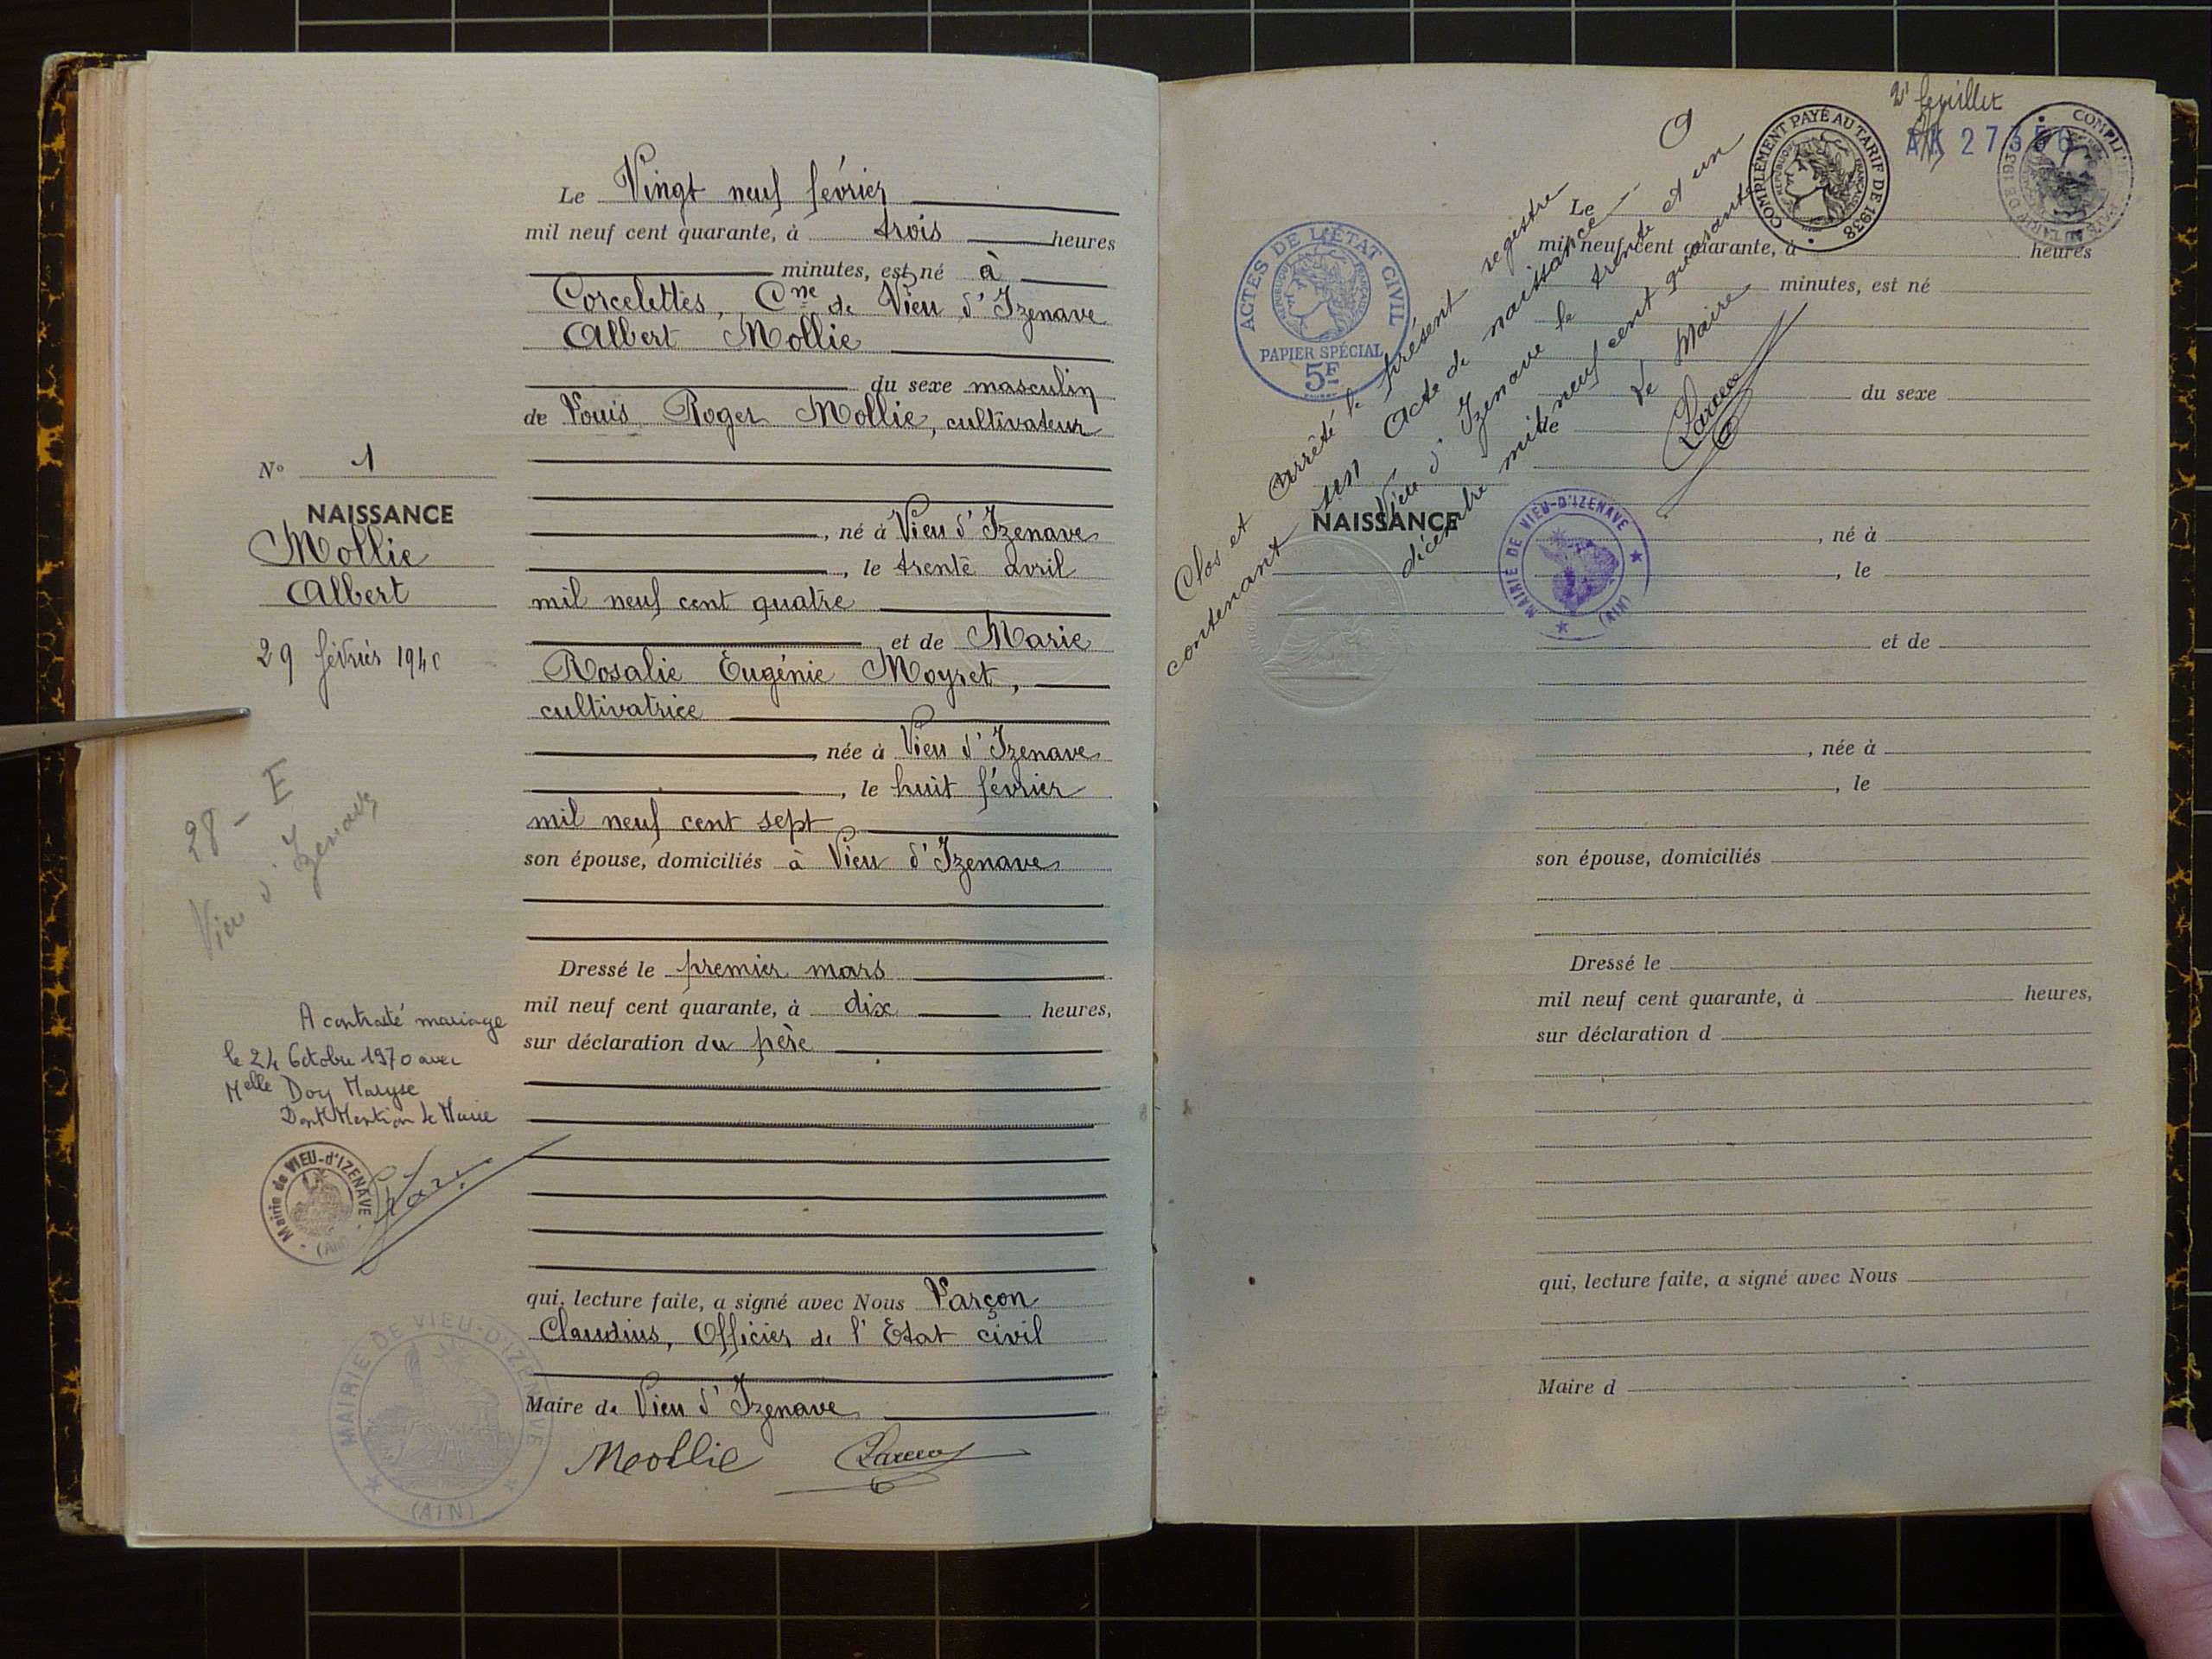 Le Vingt neuf février
mil neuf cent quarante, à trois heures
minutes, est né à
Corcelettes, Cne de Vieu d'Izenave
Albert Mollie
du sexe masculin
de Louis Roger Mollie, cultivateur
N° 1
NAISSANCE
Mollie
Albert
29 février 1940
, né à Vieu d'Izenave
, le trente avril
mil neuf cent quatre
et de Marie
Rosalie Eugénie Moyret,
cultivatrice
, née à Vieu d'Izenave
, le huit février
mil neuf cent sept
son épouse, domiciliés à Vieu d'Izenave
28 - E
Vieu d'Izenave
Dressé le premier mars
mil neuf cent quarante, à dix heures,
sur déclaration du père
A contracté mariage
le 24 Octobre 1970 avec
Melle Doy Maryse
Dont Mention Le Maire
Mairie de VIEU-d'IZENAVE
(Ain)
qui, lecture faite, a signé avec Nous Varçon
Claudius, Officier de l'Etat civil
Maire de Vieu d'Izenave
MAIRIE DE VIEU-D'IZENAVE
(AIN)
Mollie
2e feuillet
AK 27350
COMPLÉMENT PAYÉ AU TARIF DE 1938
RÉPUBLIQUE FRANÇAISE
ACTES DE L'ÉTAT CIVIL
RÉPUBLIQUE FRANÇAISE
PAPIER SPÉCIAL
5F
Clos et arrêté le présent registre
contenant un Acte de naissance
Vieu d'Izenave le trente et un
décembre mil neuf cent quarante
Le Maire
MAIRIE DE VIEU-D'IZENAVE
(AIN)
Le
mil neuf cent quarante, à heures
minutes, est né
du sexe
de
NAISSANCE
, né à
, le
et de
, née à
, le
son épouse, domiciliés
Dressé le
mil neuf cent quarante, à heures,
sur déclaration d
qui, lecture faite, a signé avec Nous
Maire d